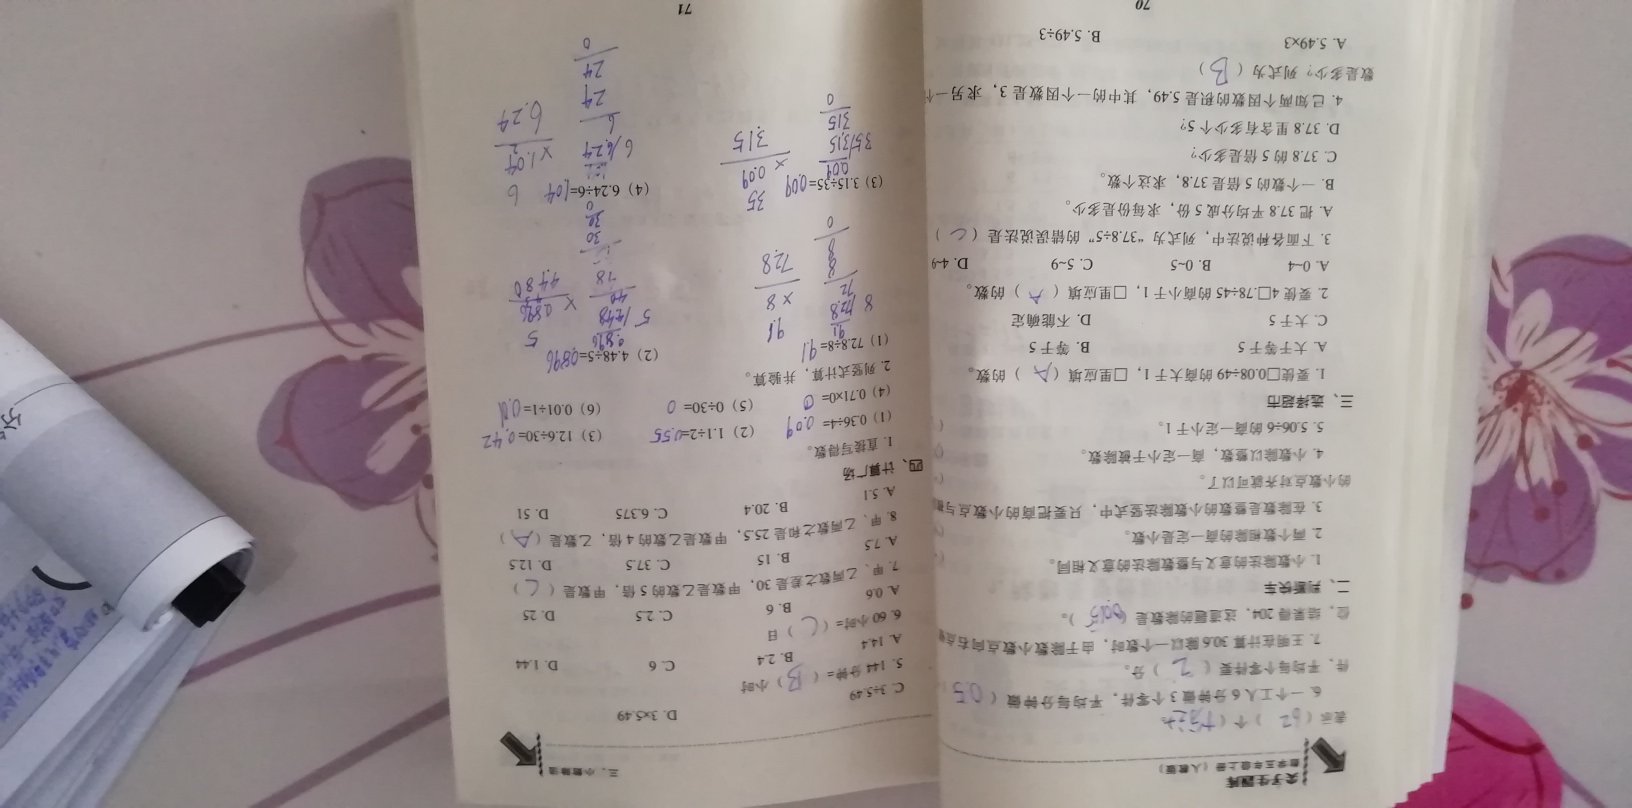 尖子生题库
数学五年级上册（人教版）
表示（62）个（十分之一
6. 一个工人6分钟做3个零件，平均每分钟做（0.5
件，平均每个零件要（2）分。
7. 王明在计算30.6除以一个数时，由于除数小数点向右点错
位，结果得204，这道题的除数是（0.15）。
二、判断快车
1. 小数除法的意义与整数除法的意义相同。
2. 两个数相除的商一定是小数。
3. 在除数是整数的小数除法竖式中，只要把商的小数点与被
的小数点对齐就可以了。
4. 小数除以整数，商一定小于被除数。
5. 5.06÷6的商一定小于1。
三、选择超市
1. 要使□0.08÷49的商大于1，□里应填（A）的数。
A. 大于等于5 B. 等于5
C. 大于5 D. 不能确定
2. 要使4□.78÷45的商小于1，□里应填（A）的数。
A. 0~4 B. 0~5 C. 5~9 D. 4~9
3. 下面各种说法中，列式为“37.8÷5”的错误说法是（C）
A. 把37.8平均分成5份，求每份是多少。
B. 一个数的5倍是37.8，求这个数。
C. 37.8的5倍是多少？
D. 37.8里含有多少个5？
4. 已知两个因数的积是5.49，其中的一个因数是3，求另一个
数是多少？列式为（B）
A. 5.49×3 B. 5.49÷3
70
三、小数除法
C. 3÷5.49 D. 3×5.49
5. 144分钟=（B）小时
A. 14.4 B. 2.4 C. 6 D. 1.44
6. 60小时=（C）日
A. 0.6 B. 6 C. 2.5 D. 25
7. 甲、乙两数之差是30，甲数是乙数的5倍，甲数是（C）
A. 7.5 B. 15 C. 37.5 D. 12.5
8. 甲、乙两数之和是25.5，甲数是乙数的4倍，乙数是（A）
A. 5.1 B. 20.4 C. 6.375 D. 51
四、计算广场
1. 直接写得数。
(1) 0.36÷4=0.09 (2) 1.1÷2=0.55 (3) 12.6÷30=0.42
(4) 0.71×0=0 (5) 0÷30=0 (6) 0.01÷1=0.01
2. 列竖式计算，并验算。
(1) 72.8÷8=9.1 (2) 4.48÷5=0.896
9.1
8 72.8
72
8
8
0
9.1
× 8
72.8
0.896
5 4.48
40
48
30
30
0
5
× 0.896
4.480
(3) 3.15÷35=0.09 (4) 6.24÷6=1.04
0.09
35 3.15
315
0
35
× 0.09
3.15
6 6.24
6
24
24
0
6
× 1.04
6.24
71